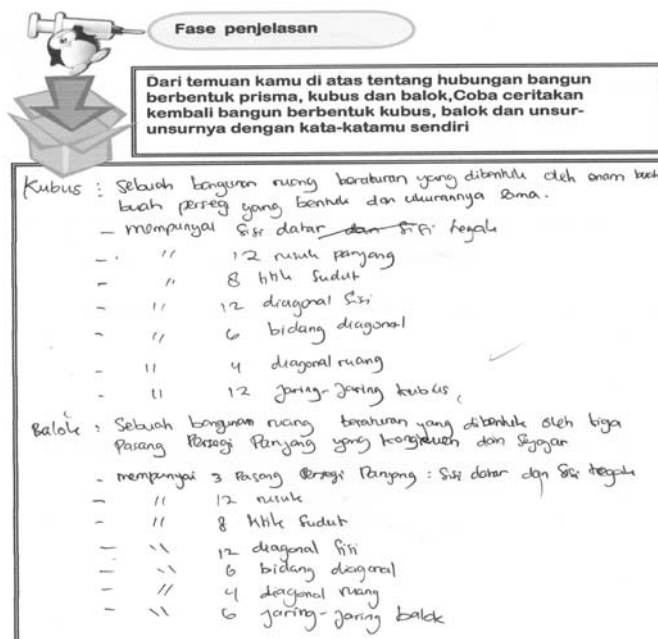 Fase penjelasan
Dari temuan kamu di atas tentang hubungan bangun
berbentuk prisma, kubus dan balok,Coba ceritakan
kembali bangun berbentuk kubus, balok dan unsur-
unsurnya dengan kata-katamu sendiri
Kubus : Sebuah bangunan ruang beraturan yang dibentuk oleh enam buah
buah perseg yang bentuk dan ukurannya sama.
- mempunyai sisi datar dan sisi tegak
- " 12 rusuk panjang
- " 8 titik sudut
- " 12 diagonal sisi
- " 6 bidang diagonal
- " 4 diagonal ruang
- " 12 jaring-jaring kubus,
Balok : Sebuah bangunan ruang beraturan yang dibentuk oleh tiga
Pasang Persegi Panjang yang kongruen dan sejajar
- mempunyai 3 Pasang Persegi Panjang : Sisi datar dan sisi tegak
- " 12 rusuk
- " 8 titik sudut
- " 12 diagonal sisi
- " 6 bidang diagonal
- " 4 diagonal ruang
- " 6 jaring-jaring balok